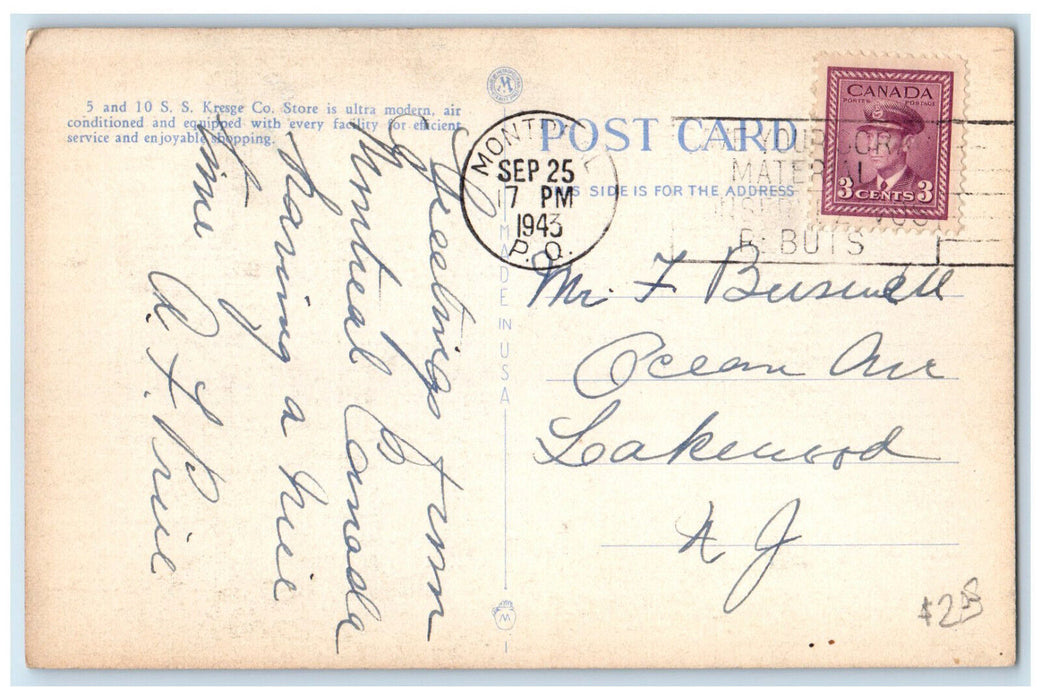 5 and 10 S. S. Kresge Co. Store is ultra modern, air
conditioned and equipped with every facility for efficient
service and enjoyable shopping.
POST CARD
THIS SIDE IS FOR THE ADDRESS
MADE IN USA
MONTREAL
SEP 25
17 PM
1943
P. Q.
YOUR
MATERIAL
CANADA
POSTES POSTAGE
3 CENTS 3
Greetings from
Montreal Canada
Having a nice
time
A. F. Price
Mr. F Buswell
Ocean Ave
Lakewood
N J
$2